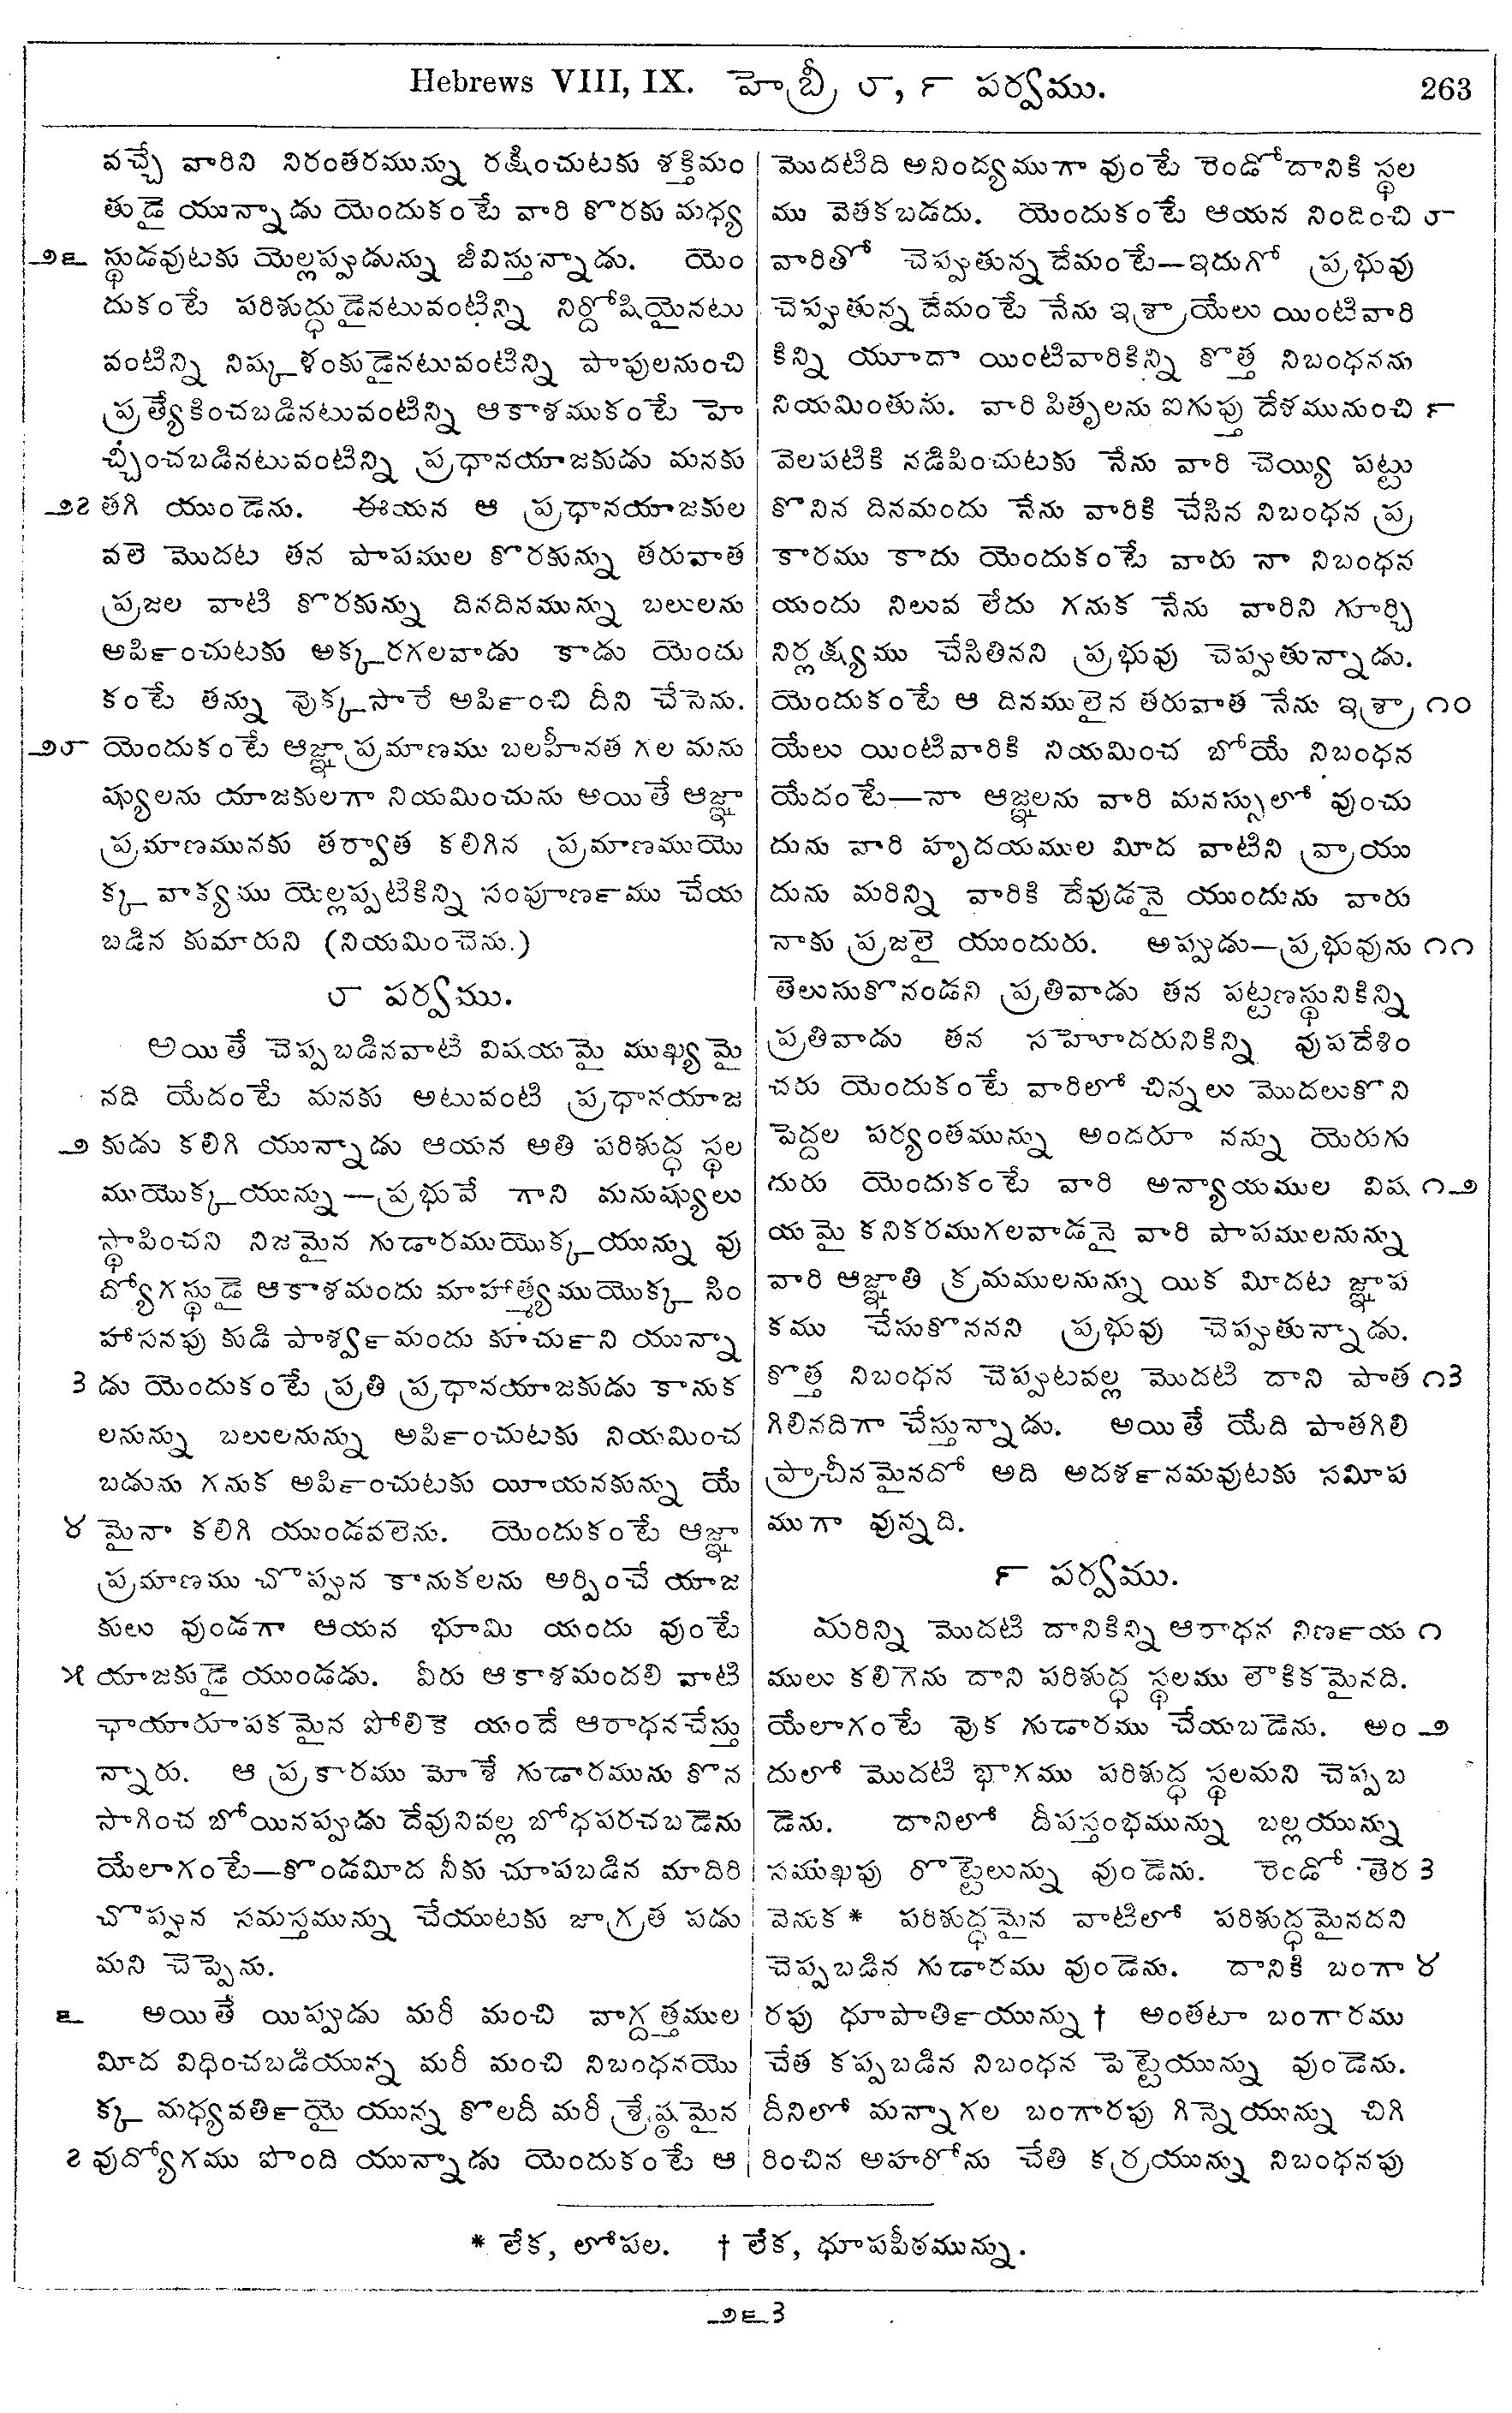 Hebrews VIII, IX. హెబ్రీ ౮, ౯ పర్వము. 263
వచ్చే వారిని నిరంతరమున్ను రక్షించుటకు శక్తిమం
తుడై యున్నాడు యెందుకంటే వారి కొరకు మధ్య
౨౬ స్థుడవుటకు యెల్లప్పుడున్ను జీవిస్తున్నాడు. యెం
దుకంటే పరిశుద్ధుడైనటువంటిన్ని నిర్దోషియైనటు
వంటిన్ని నిష్కళంకుడైనటువంటిన్ని పాపులనుంచి
ప్రత్యేకించబడినటువంటిన్ని ఆకాశముకంటే హె
చ్చించబడినటువంటిన్ని ప్రధానయాజకుడు మనకు
౨౭ తగి యుండెను. ఈయన ఆ ప్రధానయాజకుల
వలె మొదట తన పాపముల కొరకున్ను తరువాత
ప్రజల వాటి కొరకున్ను దినదినమున్ను బలులను
అపిఁంచుటకు అక్కరగలవాడు కాడు యెందు
కంటే తన్ను వొక్కసారే అపిఁంచి దీని చేసెను.
౨౮ యెందుకంటే ఆజ్ఞాప్రమాణము బలహీనత గల మను
ష్యులను యాజకులగా నియమించును అయితే ఆజ్ఞా
ప్రమాణమునకు తర్వాత కలిగిన ప్రమాణముయొ
క్క వాక్యము యెల్లప్పటికిన్ని సంపూణఁము చేయ
బడిన కుమారుని (నియమించెను.)
౮ పర్వము.
అయితే చెప్పబడినవాటి విషయమై ముఖ్యమై
నది యేదంటే మనకు అటువంటి ప్రధానయాజ
౨ కుడు కలిగి యున్నాడు ఆయన అతి పరిశుద్ధ స్థల
ముయొక్కయున్ను—ప్రభువే గాని మనుష్యులు
స్థాపించని నిజమైన గుడారముయొక్కయున్ను వు
ద్యోగస్థుడై ఆకాశమందు మాహాత్మ్యముయొక్క సిం
హాసనపు కుడి పాశ్వఁమందు కూచుఁని యున్నా
౩ డు యెందుకంటే ప్రతి ప్రధానయాజకుడు కానుక
లనున్ను బలులనున్ను అపిఁంచుటకు నియమించ
బడును గనుక అపిఁంచుటకు యీయనకున్ను యే
౪ మైనా కలిగి యుండవలెను. యెందుకంటే ఆజ్ఞా
ప్రమాణము చొప్పున కానుకలను అర్పించే యాజ
కులు వుండగా ఆయన భూమి యందు వుంటే
౫ యాజకుడై యుండడు. వీరు ఆకాశమందలి వాటి
ఛాయారూపకమైన పోలికె యందే ఆరాధనచేస్తు
న్నారు. ఆ ప్రకారము మోశే గుడారమును కొన
సాగించ బోయినప్పుడు దేవునివల్ల బోధపరచబడెను
యేలాగంటే—కొండమీద నీకు చూపబడిన మాదిరి
చొప్పున సమస్తమున్ను చేయుటకు జాగ్రత పడు
మని చెప్పెను.
౬ అయితే యిప్పుడు మరీ మంచి వాగ్దత్తముల
మీద విధించబడియున్న మరీ మంచి నిబంధనయొ
క్క మధ్యవతిఁయై యున్న కొలదీ మరీ శ్రేష్ఠమైన
౭ వుద్యోగము పొంది యున్నాడు యెందుకంటే ఆ
మొదటిది అనింద్యముగా వుంటే రెండోదానికి స్థల
ము వెతకబడదు. యెందుకంటే ఆయన నిందించి ౮
వారితో చెప్పుతున్నదేమంటే—ఇదుగో ప్రభువు
చెప్పుతున్నదేమంటే నేను ఇశ్రాయేలు యింటివారి
కిన్ని యూదా యింటివారికిన్ని కొత్త నిబంధనను
నియమింతును. వారి పితృలను ఐగుప్తు దేశమునుంచి ౯
వెలపటికి నడిపించుటకు నేను వారి చెయ్యి పట్టు
కొనిన దినమందు నేను వారికి చేసిన నిబంధన ప్ర
కారము కాదు యెందుకంటే వారు నా నిబంధన
యందు నిలువ లేదు గనుక నేను వారిని గూర్చి
నిర్లక్ష్యము చేసితినని ప్రభువు చెప్పుతున్నాడు.
యెందుకంటే ఆ దినములైన తరువాత నేను ఇశ్రా ౧౦
యేలు యింటివారికి నియమించ బోయే నిబంధన
యేదంటే—నా ఆజ్ఞలను వారి మనస్సులో వుంచు
దును వారి హృదయముల మీద వాటిని వ్రాయు
దును మరిన్ని వారికి దేవుడనై యుందును వారు
నాకు ప్రజలై యుందురు. అప్పుడు—ప్రభువును ౧౧
తెలుసుకొనండని ప్రతివాడు తన పట్టణస్థునికిన్ని
ప్రతివాడు తన సహెూదరునికిన్ని వుపదేశిం
చరు యెందుకంటే వారిలో చిన్నలు మొదలుకొని
పెద్దల పర్యంతమున్ను అందరూ నన్ను యెరుగు
దురు యెందుకంటే వారి అన్యాయముల విష ౧౨
యమై కనికరముగలవాడనై వారి పాపములనున్ను
వారి ఆజ్ఞాతి క్రమములనున్ను యిక మీదట జ్ఞాప
కము చేసుకొననని ప్రభువు చెప్పుతున్నాడు.
కొత్త నిబంధన చెప్పుటవల్ల మొదటి దాని పాత ౧౩
గిలినదిగా చేస్తున్నాడు. అయితే యేది పాతగిలి
ప్రాచీనమైనదో అది అదశఁనమవుటకు సమీప
ముగా వున్నది.
౯ పర్వము.
మరిన్ని మొదటి దానికిన్ని ఆరాధన నిణఁయ ౧
ములు కలిగెను దాని పరిశుద్ధ స్థలము లౌకికమైనది.
యేలాగంటే వొక గుడారము చేయబడెను. అం ౨
దులో మొదటి భాగము పరిశుద్ధ స్థలమని చెప్పబ
డెను. దానిలో దీపస్తంభమున్ను బల్లయున్ను
సముఖపు రొట్టెలున్ను వుండెను. రెండో తెర ౩
వెనుక* పరిశుద్ధమైన వాటిలో పరిశుద్ధమైనదని
చెప్పబడిన గుడారము వుండెను. దానికి బంగా ౪
రపు ధూపాతిఁయున్ను† అంతటా బంగారము
చేత కప్పబడిన నిబంధన పెట్టెయున్ను వుండెను.
దీనిలో మన్నాగల బంగారపు గిన్నెయున్ను చిగి
రించిన అహరోను చేతి కర్రయున్ను నిబంధనపు
* లేక, లోపల. † లేక, ధూపపీఠమున్ను.
౨౬౩